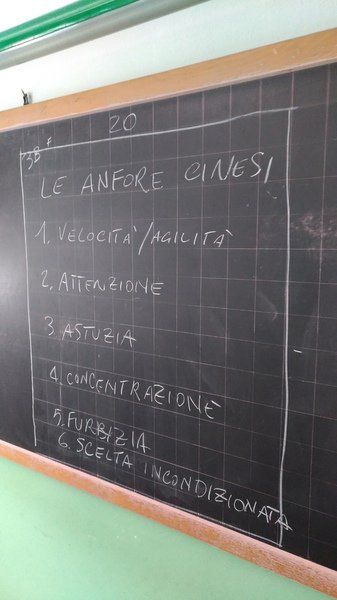 20
3B F
LE ANFORE CINESI
1. VELOCITA'/AGILITÀ
2. ATTENZIONE
3. ASTUZIA
4. CONCENTRAZIONE
5. FURBIZIA
6. SCELTA INCONDIZIONATA